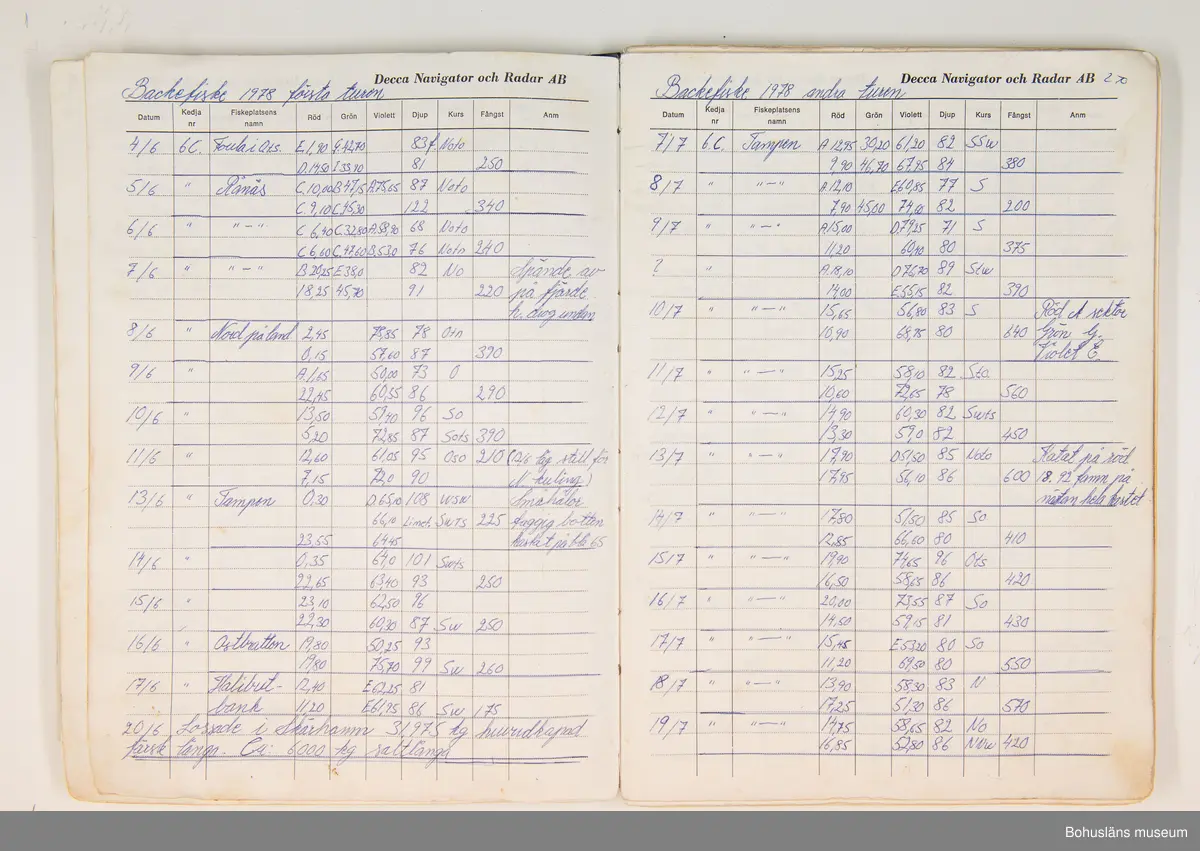 Decca Navigator och Radar AB
Backefiske 1978 första turen
Datum Kedja nr Fiskeplatsens namn Röd Grön Violett Djup Kurs Fångst Anm
4/6 6C. E.1,90 G.42,70 83 f. Noto
D.14,50 I.33,90 81 250
5/6 " Rånås C.10,00 B.47,5 A75,65 87 Noto
C.9,10 C.45,30 122 340
6/6 " " — " C 6,40 C.32,80 A.58,90 68 Noto
C 6,60 C.47,60 B.53,0 76 Noto 240
7/6 " " — " B.20,25 E38,0 82 No Spände av
18,25 45,70 91 220 på fjärde
h. drog undan
8/6 " Nord på land 2,45 73,85 78 Otn
0,15 57,60 87 390
9/6 " A.1,65 50,00 73 O
22,45 60,55 86 290
10/6 " 13,50 59,40 96 So
5,20 72,85 87 Sots 390
11/6 " 12,60 61,05 95 Oso 210 (12/6 låg still för
7,15 72,0 90 N. kuling.)
13/6 " Tampen 0,30 D.65,10 108 WSW Småhålor
66,10 Swts 225 taggig botten
23,55 64,45 kastat på blå 65
14/6 " 0,35 64,0 101 Swts
22,65 63,40 93 250
15/6 " 23,10 62,50 96
22,30 60,30 87 Sw 250
16/6 " Ostbutten 19,80 50,25 93
19,80 75,70 99 Sw 260
17/6 " Halibut- 12,40 E62,25 81
bank 11,20 E61,95 86 Sw 175
20/6 Lossade i Skärhamn 31975 kg huvudkapad
färsk långa. Ca: 6000 kg saltlånga
Decca Navigator och Radar AB
Backefiske 1978 andra turen
Datum Kedja nr Fiskeplatsens namn Röd Grön Violett Djup Kurs Fångst Anm
7/7 6.C. Tampen A 12,95 30,20 61,20 82 SSW
9,90 46,70 67,95 84 380
8/7 " " — " A 12,10 E60,85 77 S
7,90 45,00 74,60 82 200
9/7 " " — " A15,00 D79,25 71 S
11,20 60,40 80 375
? " A.18,10 D76,70 89 Stw
14,00 E55,15 82 390
10/7 " " — " 15,65 56,80 83 S Röd A sektor
10,90 68,75 80 640 Grön G.
Violet E.
11/7 " " — " 15,25 58,10 82 Sto
10,60 72,65 78 560
12/7 " " — " 14,90 60,30 82 Swts
13,30 59,0 82 450
13/7 " " — " 17,90 D51,50 85 Noto Katat på röd
17,95 56,10 86 600 18. 92 famn på
nästan hela kastet
14/7 " " — " 17,80 51,50 85 So
12,85 66,60 80 410
15/7 " " — " 19,90 74,65 96 Ots
16,50 58,65 86 420
16/7 " " — " 20,00 73,55 87 So
14,50 59,15 81 430
17/7 " " — " 15,45 E53,20 80 So
11,20 69,50 80 550
18/7 " " — " 13,90 58,30 83 N
17,25 51,30 86 570
19/7 " " — " 14,75 58,65 82 No
16,85 52,80 86 NNW 420
Bohusläns museum